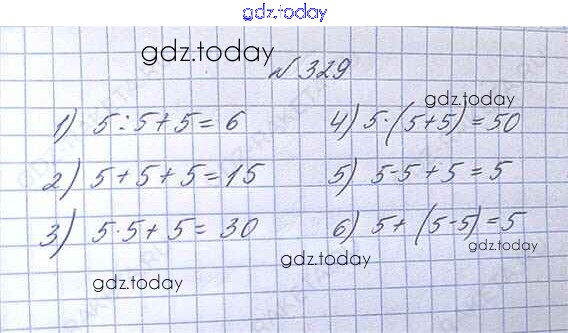 gdz.today
gdz.today
№ 329
gdz.today
1) 5:5+5=6
4) 5·(5+5)=50
2) 5+5+5=15
5) 5-5+5=5
3) 5·5+5=30
6) 5+(5-5)=5
gdz.today
gdz.today
gdz.today